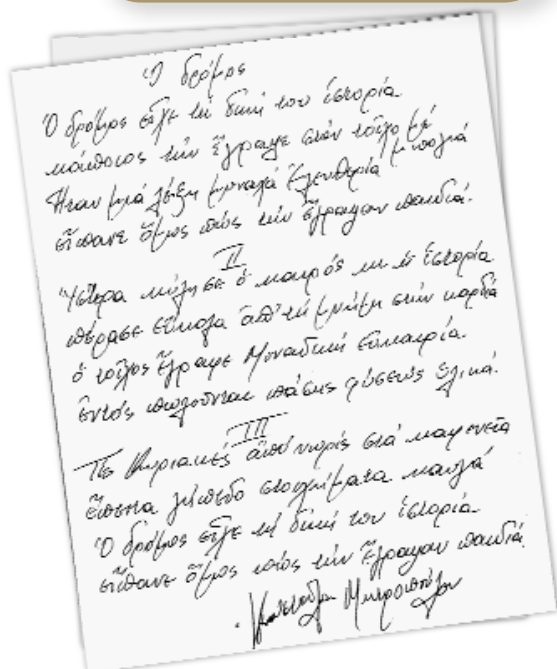 Ὁ δρόμος
Ὁ δρόμος εἶχε τὴ δική του ἱστορία
κάποιος τὴν ἔγραψε στὸν τοῖχο μὲ μπογιά
Ἦταν μιὰ λέξη μοναχὰ Ἐλευθερία
εἴπανε ὅμως πὼς τὴν ἔγραψαν παιδιά.
II
Ὕστερα κύλησε ὁ καιρὸς κι ἡ ἱστορία
πέρασε εὔκολα ἀπ' τὴ μνήμη στὴν καρδιὰ
ὁ τοῖχος ἔγραφε Μοναδικὴ Εὐκαιρία
ἐντὸς πωλοῦνται πάσης φύσεως ὑλικά.
III
Τὶς Κυριακὲς ἀπὸ νωρὶς στὰ καφενεῖα
ἔπειτα γήπεδο στοιχήματα καυγὰ
Ὁ δρόμος εἶχε τὴ δική του ἱστορία
εἴπανε ὅμως πὼς τὴν ἔγραψαν παιδιά.
Κωστούλα Μητροπούλου